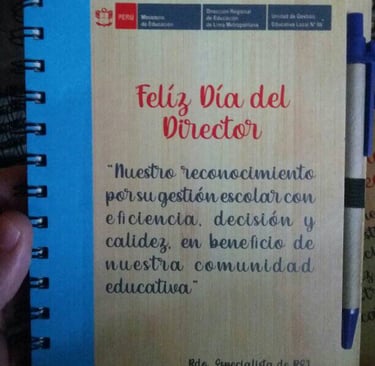 PERÚ
Ministerio
de Educación
Dirección Regional
de Educación
de Lima Metropolitana
Unidad de Gestión
Educativa Local N°
Felíz Día del
Director
"Nuestro reconocimiento
por su gestión escolar con
eficiencia, decisión y
calidez, en beneficio de
nuestra comunidad
educativa"
Especialista de